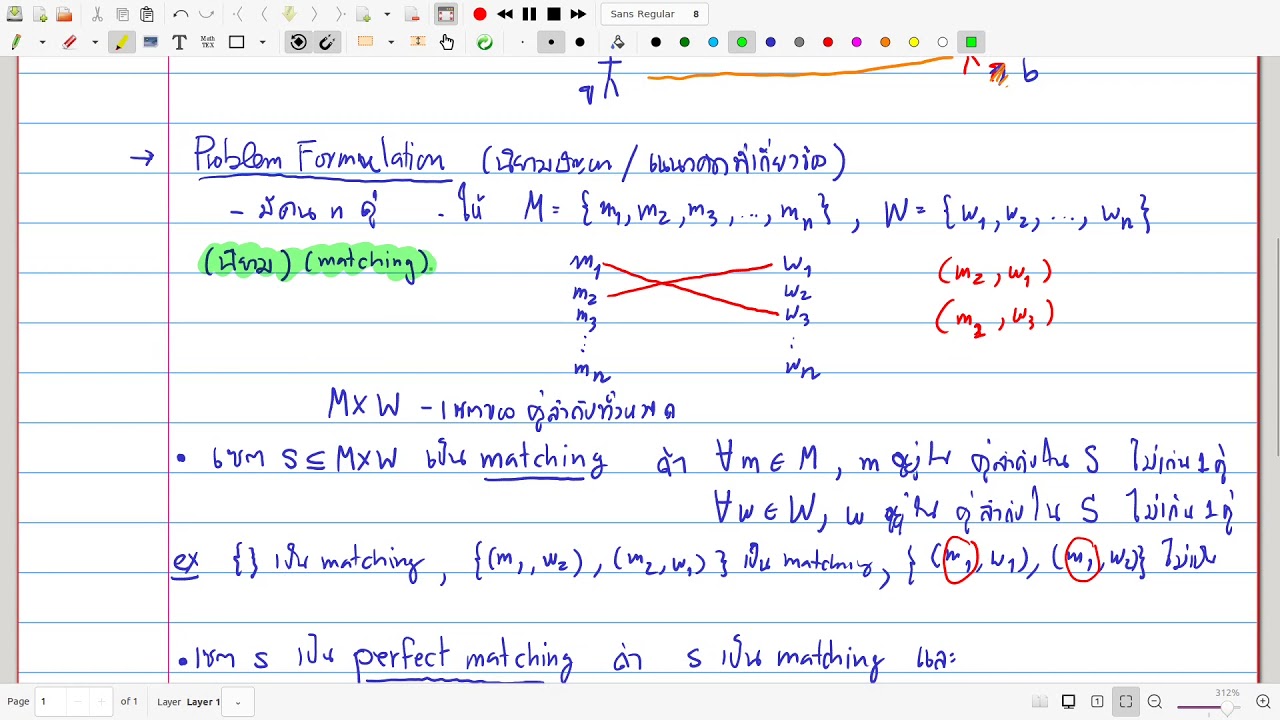 Sans Regular 8
ข b
→ Problem Formulation (นิยามปัญหา / แนวคิดที่เกี่ยวข้อง)
- มีคน n คู่ . ให้ M = {m1, m2, m3, ..., mn}, W = {w1, w2, ..., wn}
(นิยาม) (matching).
m1 w1 (m2, w1)
m2 w2
m3 w3 (m2, w3)
⋮ ⋮
mn wn
M×W - เซตของ คู่ลำดับทั้งหมด
• เซต S ⊆ M×W เป็น matching ถ้า ∀m ∈ M, m อยู่ใน คู่ลำดับใน S ไม่เกิน 1 คู่
∀w ∈ W, w อยู่ใน คู่ลำดับใน S ไม่เกิน 1 คู่
ex {} เป็น matching, {(m1, w2), (m2, w1)} เป็น matching, {(m1, w1), (m1, w2)} ไม่เป็น
• เซต S เป็น perfect matching ถ้า S เป็น matching และ
Page 1 of 1 Layer Layer 1 312%